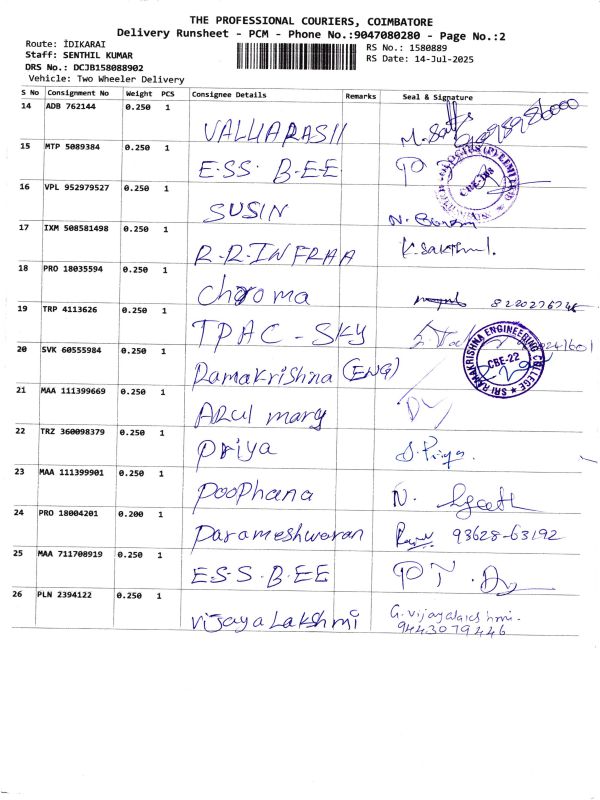 THE PROFESSIONAL COURIERS, COIMBATORE
Delivery Runsheet - PCM - Phone No.:9047080280 - Page No.:2
Route: İDIKARAI
RS No.: 1580889
Staff: SENTHIL KUMAR
RS Date: 14-Jul-2025
DRS No.: DCJB158088902
Vehicle: Two Wheeler Delivery
S No Consignment No Weight PCS Consignee Details Remarks Seal & Signature
14 ADB 762144 0.250 1 VALLIARASII
15 MTP 5089384 0.250 1 E.S.S. B.E.E. CBE-
16 VPL 952979527 0.250 1 SUSIN
17 IXM 508581498 0.250 1 R.R.INFRAA K.Sakthvl.
18 PRO 18035594 0.250 1 Chroma
19 TRP 4113626 0.250 1 TPAC - SKY
20 SVK 60555984 0.250 1 Ramakrishna (ENG) SRI RAMAKRISHNA ENGINEERING COLLEGE CBE-22
21 MAA 111399669 0.250 1 ARul mary
22 TRZ 360098379 0.250 1 Priya S.Priya.
23 MAA 111399901 0.250 1 Poophana N.
24 PRO 18004201 0.200 1 Parameshwaran 93628-63192
25 MAA 711708919 0.250 1 E.S.S.B.EE
26 PLN 2394122 0.250 1 vijaya Lakshmi G.vijayalakshmi.
9443079446